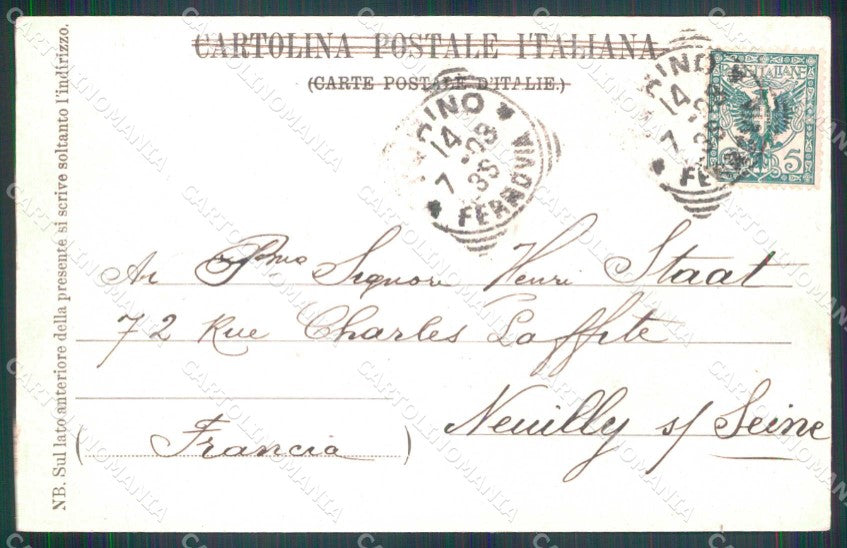 CARTOLINA POSTALE ITALIANA
(CARTE POSTALE D'ITALIE.)
NB. Sul lato anteriore della presente si scrive soltanto l'indirizzo.
TORINO
14
7 08
8S
FERROVIA
TORINO
14
7
8S
FERROVIA
5
Al Pmo Signore Henri Staat
72 Rue Charles Laffite
Neuilly s/ Seine
(Francia)
CARTOLINOMANIA